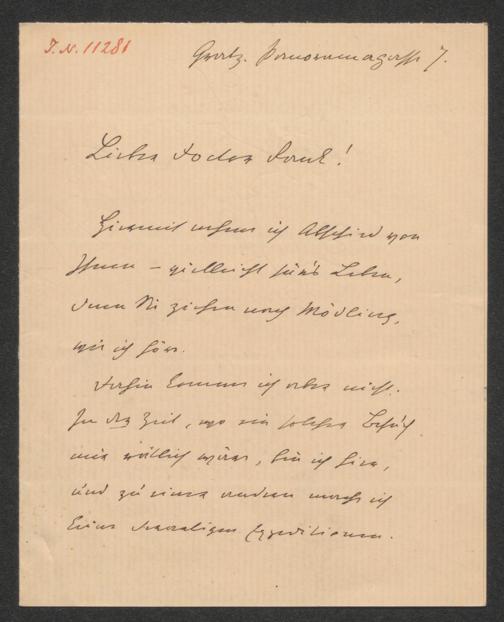 I.N. 11281
Graz. Panoramagasse 7.
Lieber Doctor Frank!
Hiermit nehme ich Abschied von
Ihnen – vielleicht für's Leben,
denn Sie ziehen nach Mödling,
wie ich höre.
Dahin komme ich aber nicht.
In der Zeit, wo ein solcher Besuch
mir möglich wäre, bin ich hier,
und zu einer andern mache ich
keine derartigen Expeditionen.